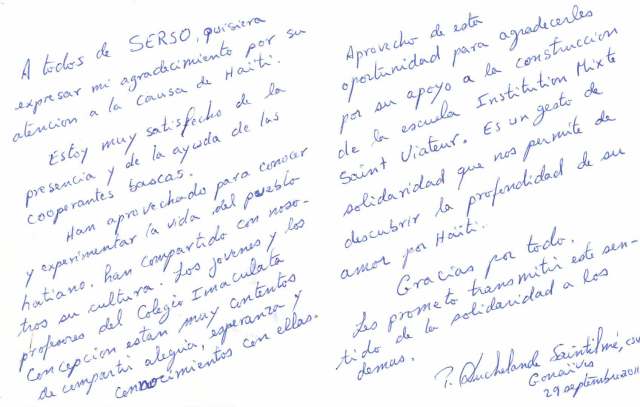 A todos de SERSO, quisiera
expresar mi agradecimiento por su
atencion a la causa de Haïti.
Estoy muy satisfecho de la
presencia y de la ayuda de las
cooperantes bascas.
Han aprovechado para conocer
y experimentar la vida del pueblo
hatiano. han compartido con noso-
tros su cultura. Los jovenes y los
profesores del Colegio Imaculata
Concepcion estan muy contentos
de compartir alegria, esperanza y
connocimientos con ellas.
Aprovecho de esta
oportunidad para agradecerles
por su apoyo a la construccion
de la escuela Institution Mixte
Saint Viateur. Es un gesto de
solidaridad que nos permite de
descubrir la profondidad de su
amor por Haïti.
Gracias por todo.
Les prometo transmitir este sen-
tido de la solidaridad a los
demas.
P. Duchelande Saintilmé, csv
Gonaïves
29 septembre 2011